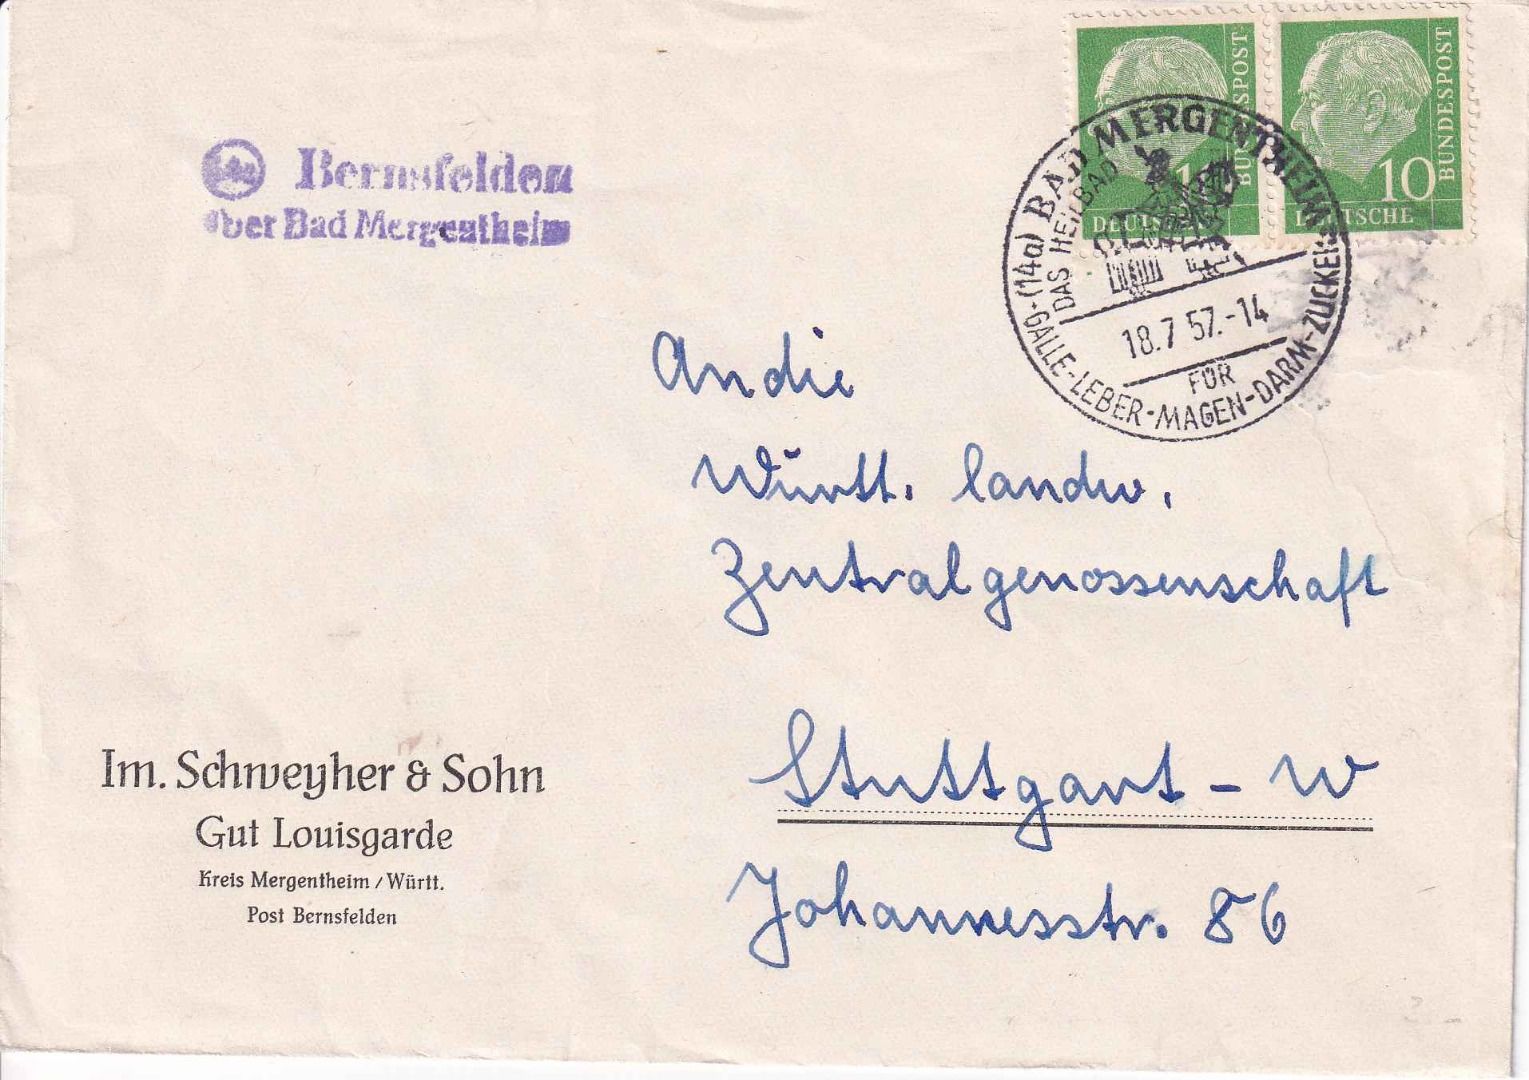 Bernsfelden
über Bad Mergentheim
DEUTSCHE
BUNDESPOST
10
DEUTSCHE
BUNDESPOST
(14a) BAD MERGENTHEIM
DAS HEILBAD
18.7 57.-14
FÜR
GALLE-LEBER-MAGEN-DARM-ZUCKER
An die
Württ. landw.
Zentralgenossenschaft
Stuttgart - W
Johannesstr. 86
Im. Schweyher & Sohn
Gut Louisgarde
Kreis Mergentheim / Württ.
Post Bernsfelden